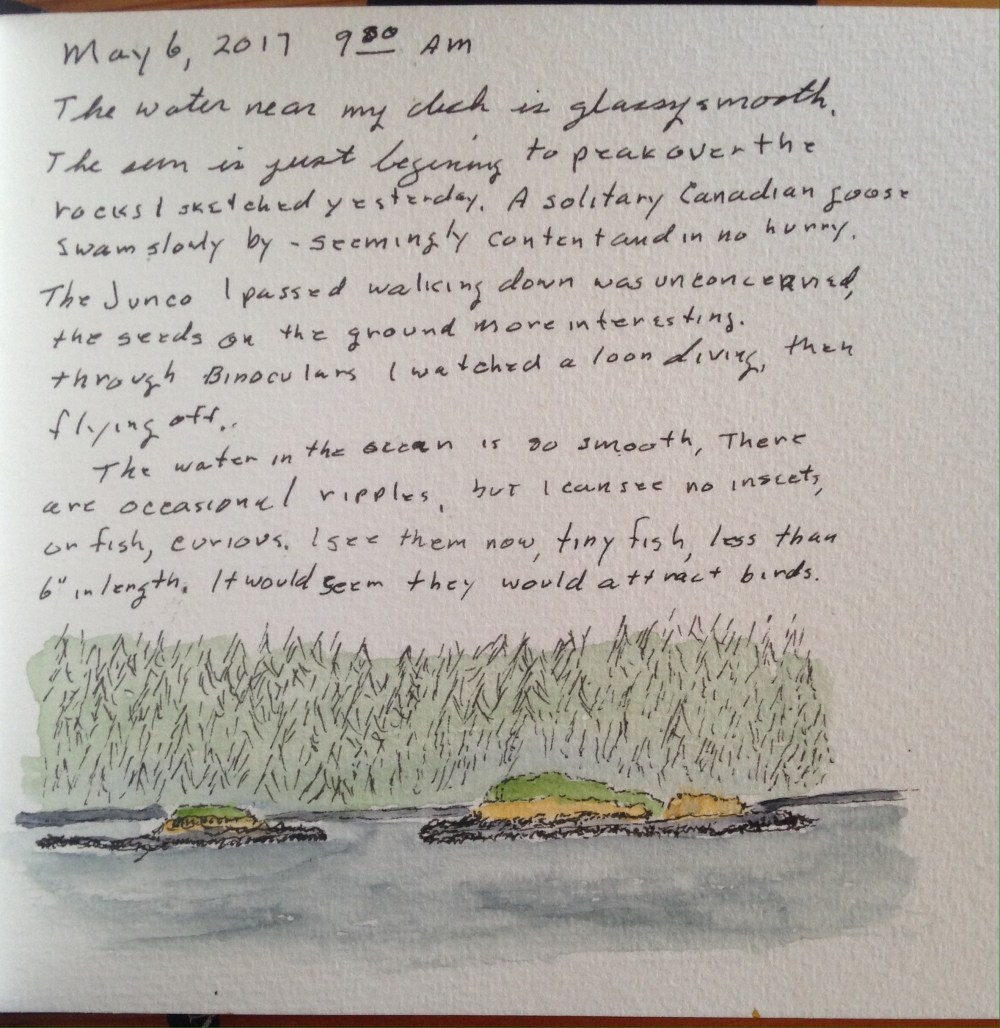 May 6, 2017 9 00 AM
The water near my deck is glassy smooth.
The sun is just begining to peak over the
rocks I sketched yesterday. A solitary Canadian goose
swam slowly by - seemingly content and in no hurry.
The Junco I passed walking down was unconcerned,
the seeds on the ground more interesting.
through Binoculars I watched a loon diving, then
flying off..
The water in the ocean is so smooth, There
are occasional ripples, but I can see no insects,
or fish, curious. I see them now, tiny fish, less than
6" in length. It would seem they would attract birds.